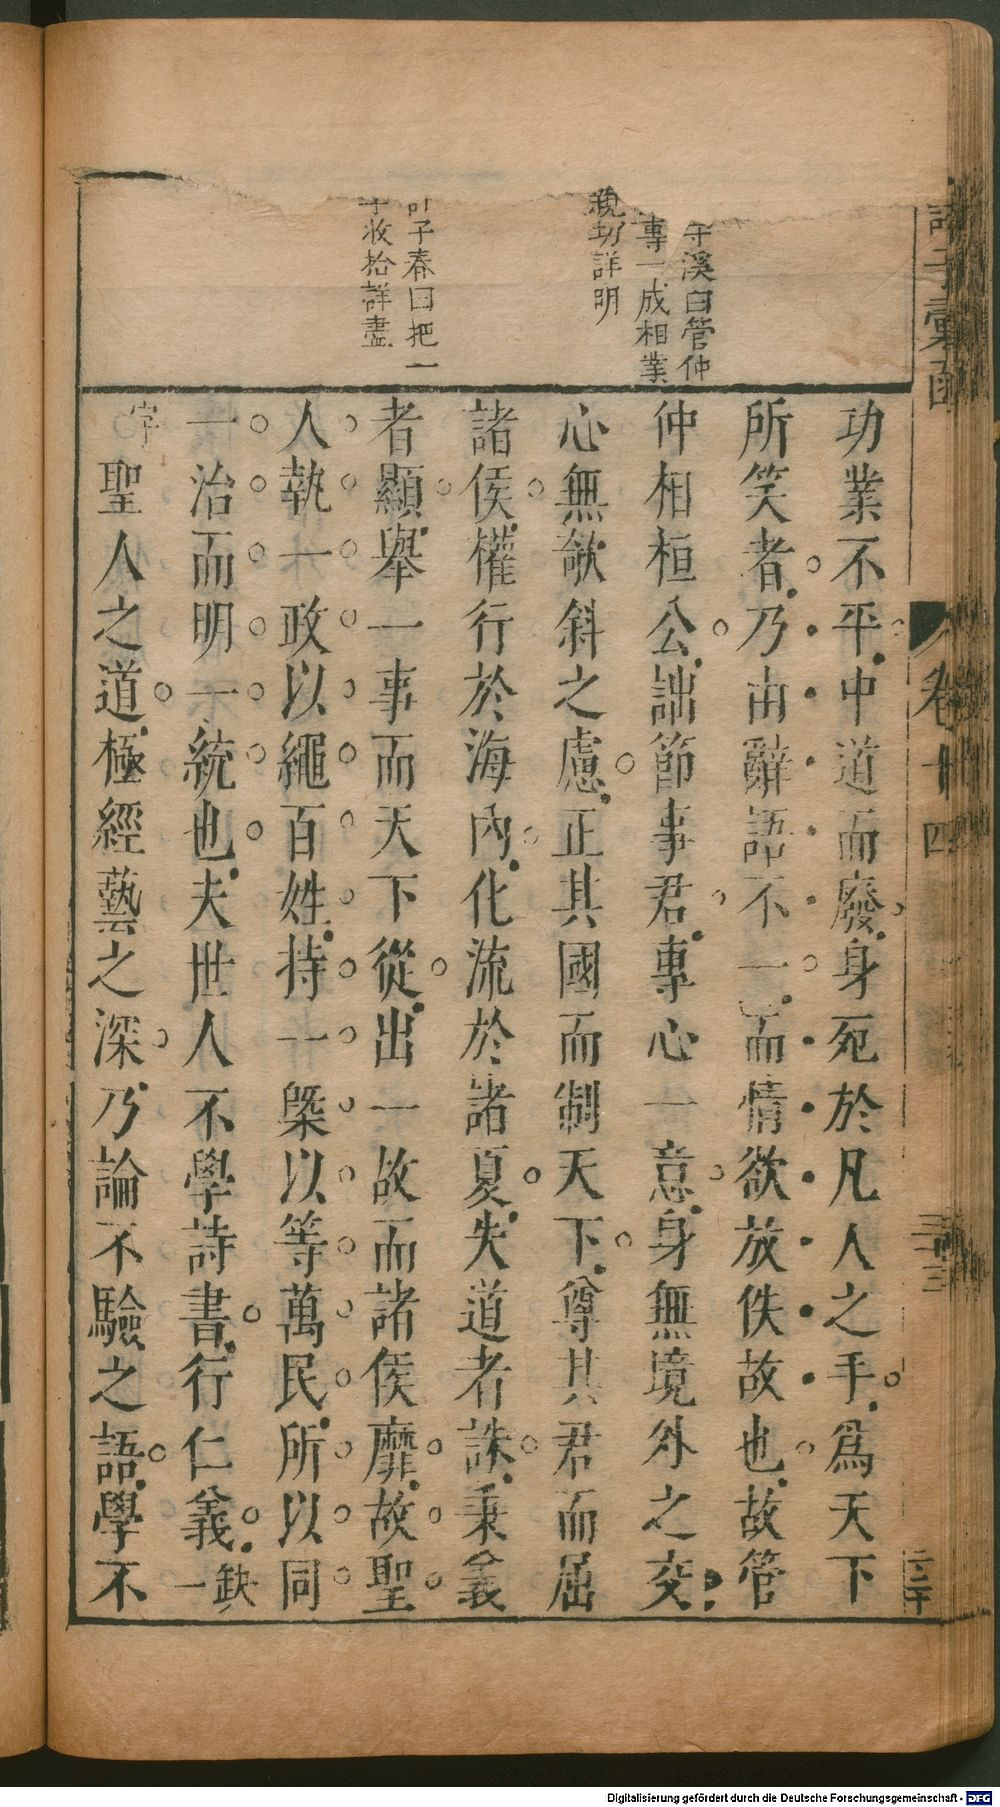 諸子彙函
卷十四
三十三
守溪曰管仲
專一成相業
親切詳明
叶子春曰把一
字收拾詳盡
功業不平中道而廢身死於凡人之手爲天下
所笑者乃由辭語不一而情欲放佚故也故管
仲相桓公詘節事君專心一意身無境外之交
心無欹斜之慮正其國而制天下尊其君而屈
諸侯權行於海內化流於諸夏失道者誅秉義
者顯舉一事而天下從出一故而諸侯靡故聖
人執一政以繩百姓持一槩以等萬民所以同
一治而明一統也夫世人不學詩書行仁義缺一
字聖人之道極經藝之深乃論不驗之語學不
Digitalisierung gefördert durch die Deutsche Forschungsgemeinschaft - DFG